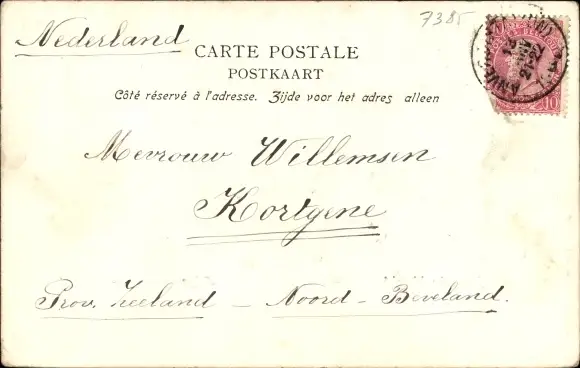 7385
Nederland
CARTE POSTALE
POSTKAART
Côté réservé à l'adresse. Zijde voor het adres alleen
Mevrouw Willemsen
Kortgene
Prov. Zeeland - Noord - Beveland.
10